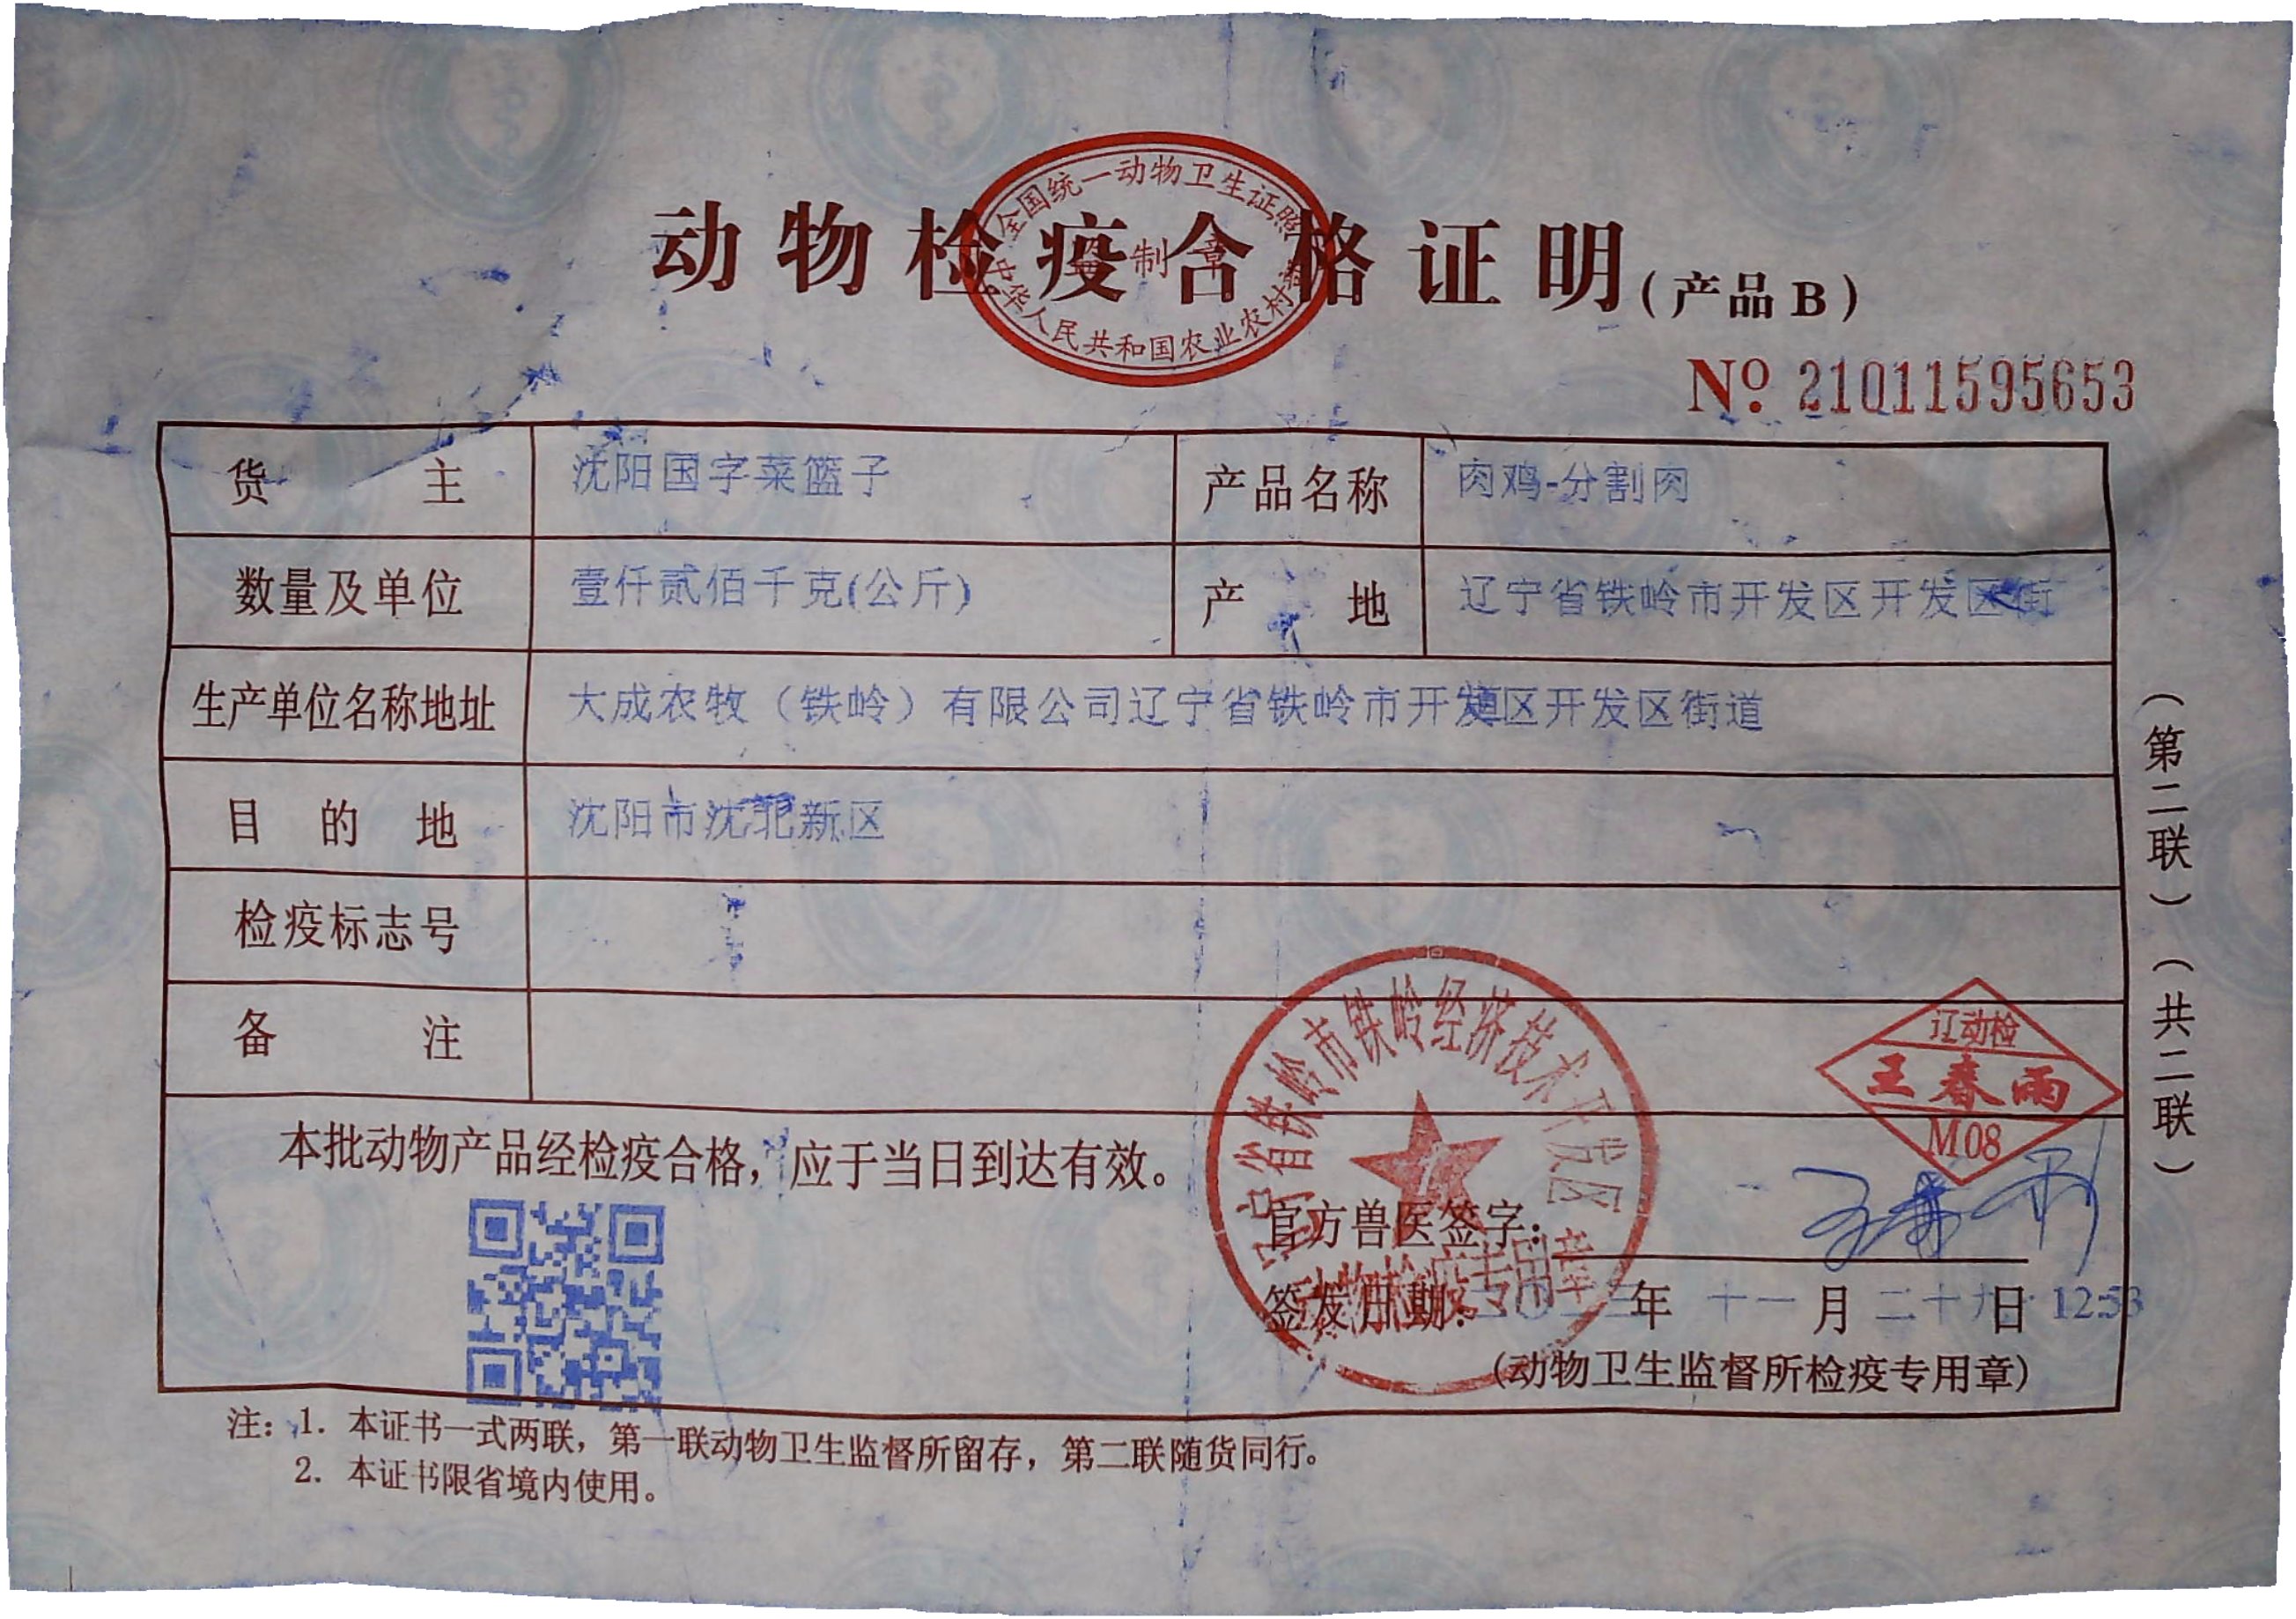 动物检疫合格证明(产品B)
全国统一动物卫生证照
监制章
中华人民共和国农业农村部
№ 21011595653
货主 沈阳国字菜篮子 产品名称 肉鸡-分割肉
数量及单位 壹仟贰佰千克(公斤) 产地 辽宁省铁岭市开发区开发区街
生产单位名称地址 大成农牧（铁岭）有限公司辽宁省铁岭市开发区开发区街道
目的地 沈阳市沈北新区
检疫标志号
备注
(第二联)(共二联)
本批动物产品经检疫合格，应于当日到达有效。
辽宁省铁岭市铁岭经济技术开发区
动物检疫专用章
辽动检
王春雨
M08
官方兽医签字：
签发日期： 年 十一 月 二十九 日 12:53
(动物卫生监督所检疫专用章)
注：1. 本证书一式两联，第一联动物卫生监督所留存，第二联随货同行。
2. 本证书限省境内使用。